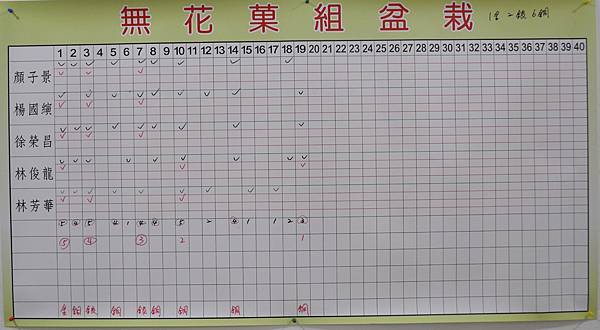 無花菓組盆栽 1金 2銀 6銅
1 2 3 4 5 6 7 8 9 10 11 12 13 14 15 16 17 18 19 20 21 22 23 24 25 26 27 28 29 30 31 32 33 34 35 36 37 38 39 40
顏子景
楊國繽
徐榮昌
林俊龍
林芳華
⑤ ④ ③ 2 1
金 銅 銀 銅 銀 銅 銅 銅 銅